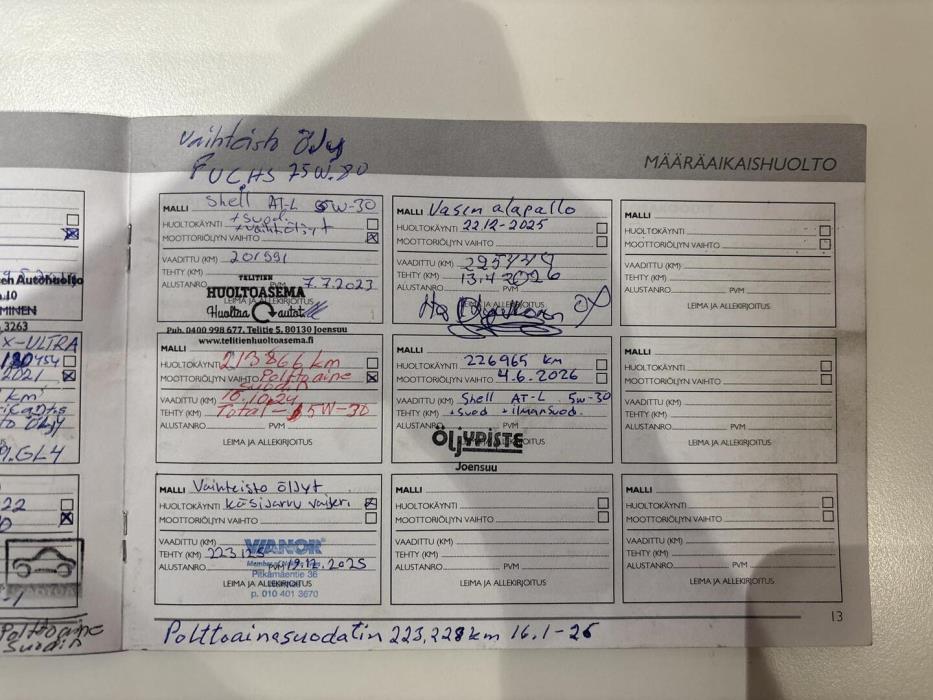 MÄÄRÄAIKAISHUOLTO
Vaihteisto Öljy
FUCHS 75W.80
MALLI Shell AT-L 5W-30
HUOLTOKÄYNTI + suod.
MOOTTORIÖLJYN VAIHTO + vaihtöljyt
VAADITTU (KM) 201591
TEHTY (KM)
ALUSTANRO. PVM 7.7.2023
LEIMA JA ALLEKIRJOITUS
TELITIEN
HUOLTOASEMA
Huoltaa autot
Puh. 0400 998 677. Telitie 5, 80130 Joensuu
www.telitienhuoltoasema.fi
MALLI Vasen alapallo
HUOLTOKÄYNTI 22.12-2025
MOOTTORIÖLJYN VAIHTO
VAADITTU (KM)
TEHTY (KM) 13.4.2026
ALUSTANRO. PVM
LEIMA JA ALLEKIRJOITUS
MALLI
HUOLTOKÄYNTI
MOOTTORIÖLJYN VAIHTO
VAADITTU (KM)
TEHTY (KM)
ALUSTANRO. PVM
LEIMA JA ALLEKIRJOITUS
MALLI
HUOLTOKÄYNTI 213866 km
MOOTTORIÖLJYN VAIHTO Polttoaine
suodin
VAADITTU (KM) 10.24
TEHTY (KM) Total - 5W-30
ALUSTANRO. PVM
LEIMA JA ALLEKIRJOITUS
MALLI
HUOLTOKÄYNTI 226965 km
MOOTTORIÖLJYN VAIHTO 4.6.2026
VAADITTU (KM) Shell AT-L 5W-30
TEHTY (KM) +suod +ilmansuod.
ALUSTANRO. PVM
ÖLJYPISTE
LEIMA JA ALLEKIRJOITUS
Joensuu
MALLI
HUOLTOKÄYNTI
MOOTTORIÖLJYN VAIHTO
VAADITTU (KM)
TEHTY (KM)
ALUSTANRO. PVM
LEIMA JA ALLEKIRJOITUS
MALLI Vaihteisto öljyt
HUOLTOKÄYNTI käsijarru vaijeri
MOOTTORIÖLJYN VAIHTO
VAADITTU (KM)
TEHTY (KM) 223125
ALUSTANRO. PVM 19.12.2025
LEIMA JA ALLEKIRJOITUS
WIANOR
Pitkämäentie 36
p. 010 401 3670
MALLI
HUOLTOKÄYNTI
MOOTTORIÖLJYN VAIHTO
VAADITTU (KM)
TEHTY (KM)
ALUSTANRO. PVM
LEIMA JA ALLEKIRJOITUS
MALLI
HUOLTOKÄYNTI
MOOTTORIÖLJYN VAIHTO
VAADITTU (KM)
TEHTY (KM)
ALUSTANRO. PVM
LEIMA JA ALLEKIRJOITUS
Polttoainesuodatin 223,228km 16.1-26
13
Autohuolto
MINEN
3263
X-ULTRA
2021
km
öljy
GL4
22
Polttoaine
suodin